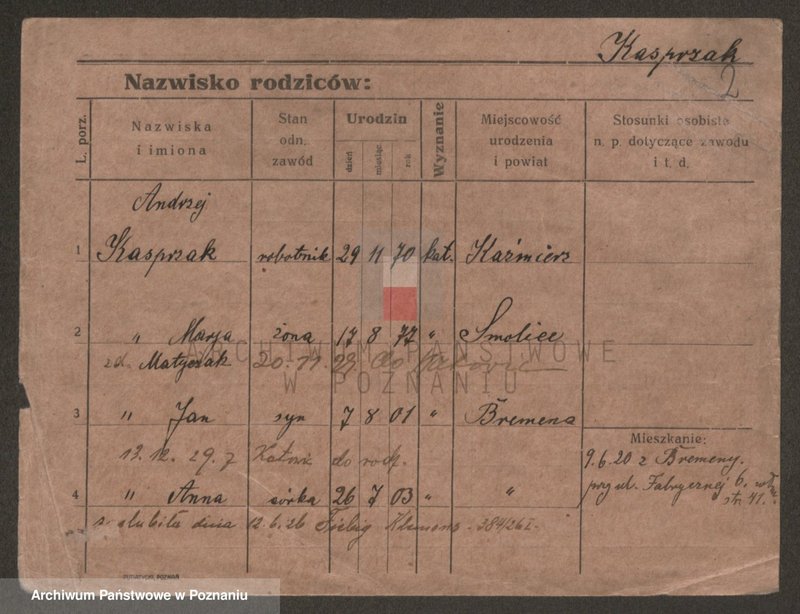 Kasprzak
2
Nazwisko rodziców:
L. porz.
Nazwiska i imiona
Stan odn. zawód
Urodzin
dzień
miesiąc
rok
Wyznanie
Miejscowość urodzenia i powiat
Stosunki osobiste n. p. dotyczące zawodu i t. d.
Andrzej
1 Kasprzak robotnik 29 11 70 kat. Kaźmierz
2 " Marja żona 17 8 77 " Smolice
zd. Matyczak 20. 11. 29 do
ARCHIWUM PAŃSTWOWE
W POZNANIU
3 " Jan syn 7 8 01 " Bremena
Mieszkanie:
13. 12. 29. z Katowic do rodz.
9.6.20 z Bremeny.
przy ul. Fabrycznej 6.
str. 41.
4 " Anna córka 26 7 03 " "
z. slubiła dnia 12.6.26 Klemens - 384/26 I -
PUTIATYCKI, POZNAŃ
Archiwum Państwowe w Poznaniu